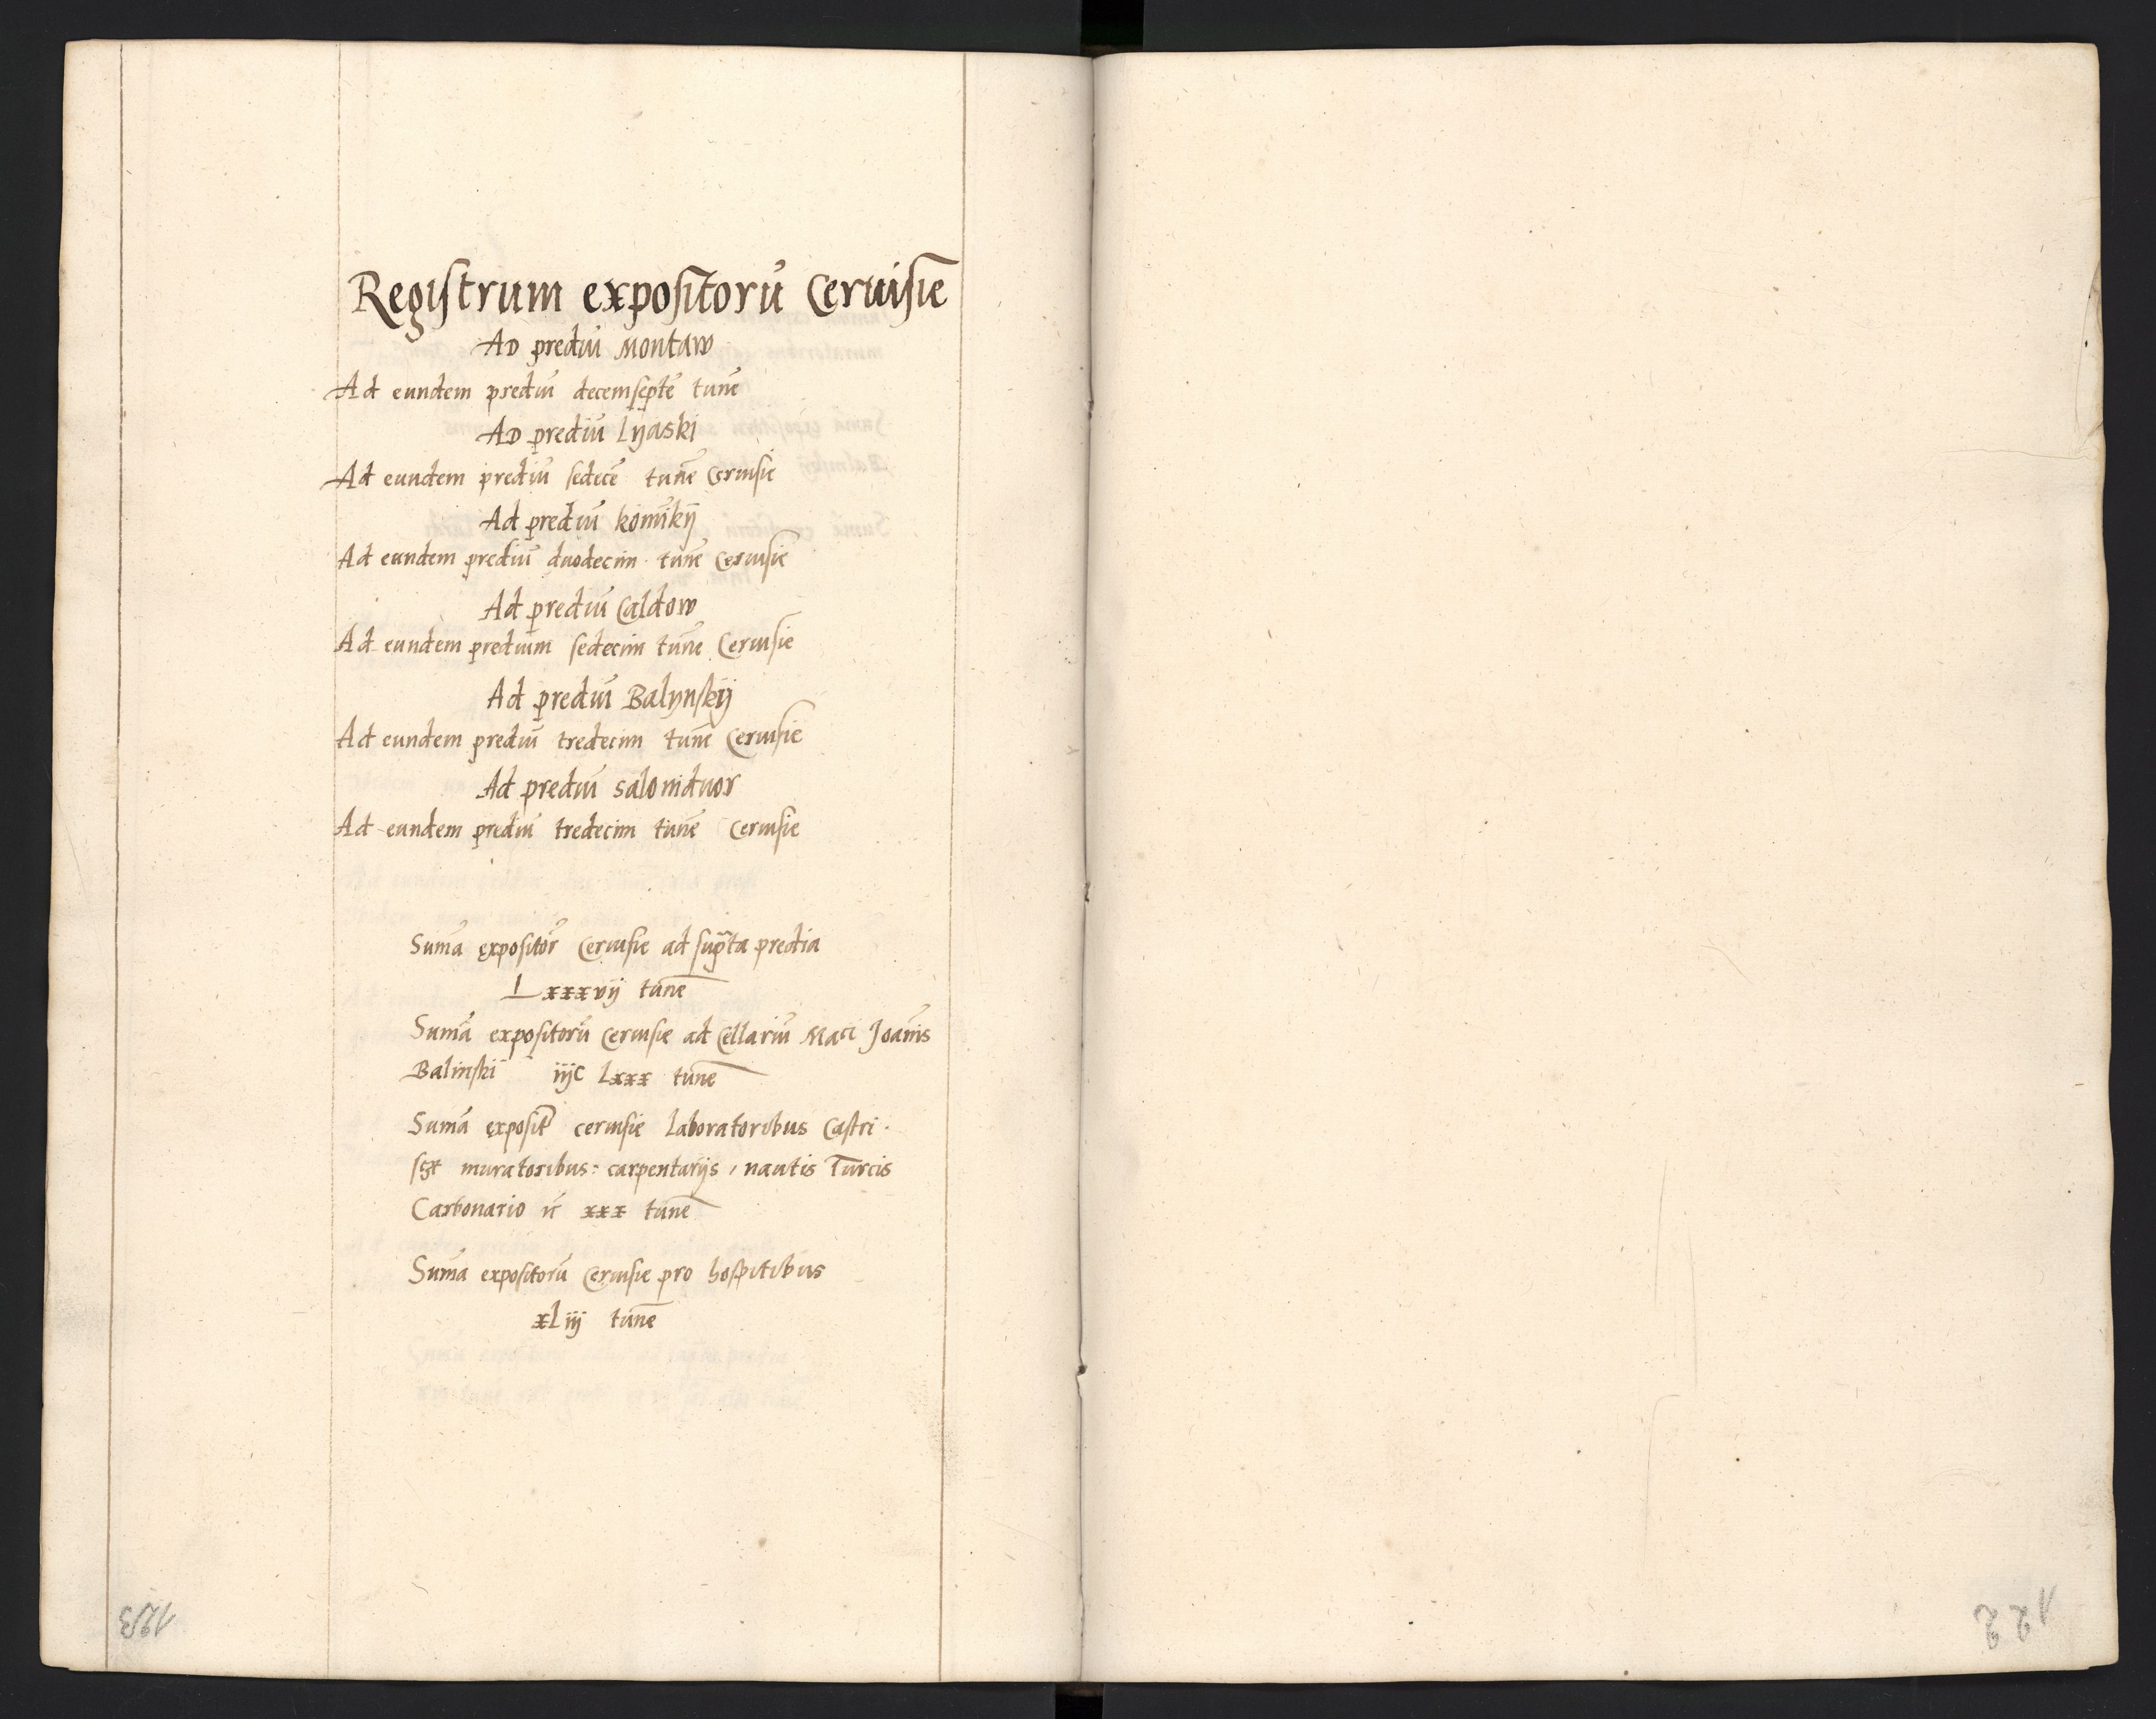 Registrum expositorũ Ceruisie
AD prediũ Montaw
Ad eundem prediũ decemsepte᷈ tun̄e
AD prediũ Lyaski
Ad eundem prediũ sedecē tun̄e Ceruisie
Ad prediũ komikij
Ad eundem prediũ duodecim tun̄e Ceruisie
Ad prediũ Caldow
Ad eundem predium sedecim tun̄e Ceruisie
Ad prediũ Balynskij
Ad eundem prediũ tredecim tun̄e Ceruisie
Ad prediũ saloniduor
Ad eundem prediũ tredecim tun̄e Ceruisie
Sum̄a expositor̃ Ceruisie ad sup̄ta predia
Lxxxvij tun̄e
Sum̄a expositorũ Ceruisie ad Cellariũ Maci Joan̄is
Balinskii iijc Lxxx tun̄e
Sum̄a exposit̃ ceruisie Laboratoribus Castri .
muratoribus: carpentarijs, nautis Turcis
Carbonario ic xxx tun̄e
Sum̄a expositorũ Ceruisie pro hospitibus
xLiij tun̄e
123
122